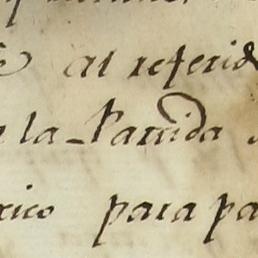 al referid
la Partida
rico para pa